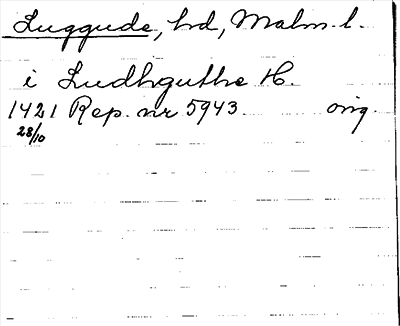 Luggude, hd, Malm. l.
i Ludhguthe H.
1421 Rep. nr 5943. orig.
28/10